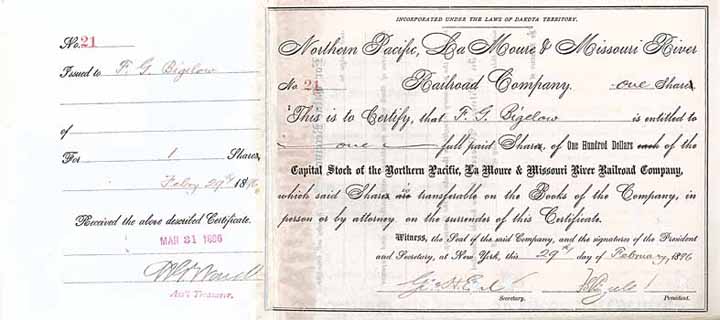 No. 21
Issued to F. G. Bigelow
of
For 1 Shares,
Feby 29th 1896
Received the above described Certificate.
MAR 31 1896
Ass't Treasurer.
INCORPORATED UNDER THE LAWS OF DAKOTA TERRITORY.
Northern Pacific, La Moure & Missouri River
No 21 Railroad Company. one Share
This is to Certify, that F. G. Bigelow is entitled to
one full paid Share, of One Hundred Dollars each of the
Capital Stock of the Northern Pacific, La Moure & Missouri River Railroad Company,
which said Share is transferable on the Books of the Company, in
person or by attorney on the surrender of this Certificate.
Witness, the Seal of the said Company, and the signatures of the President
and Secretary, at New York, this 29th day of February, 1896
Geo. H. Earl
Secretary. President.